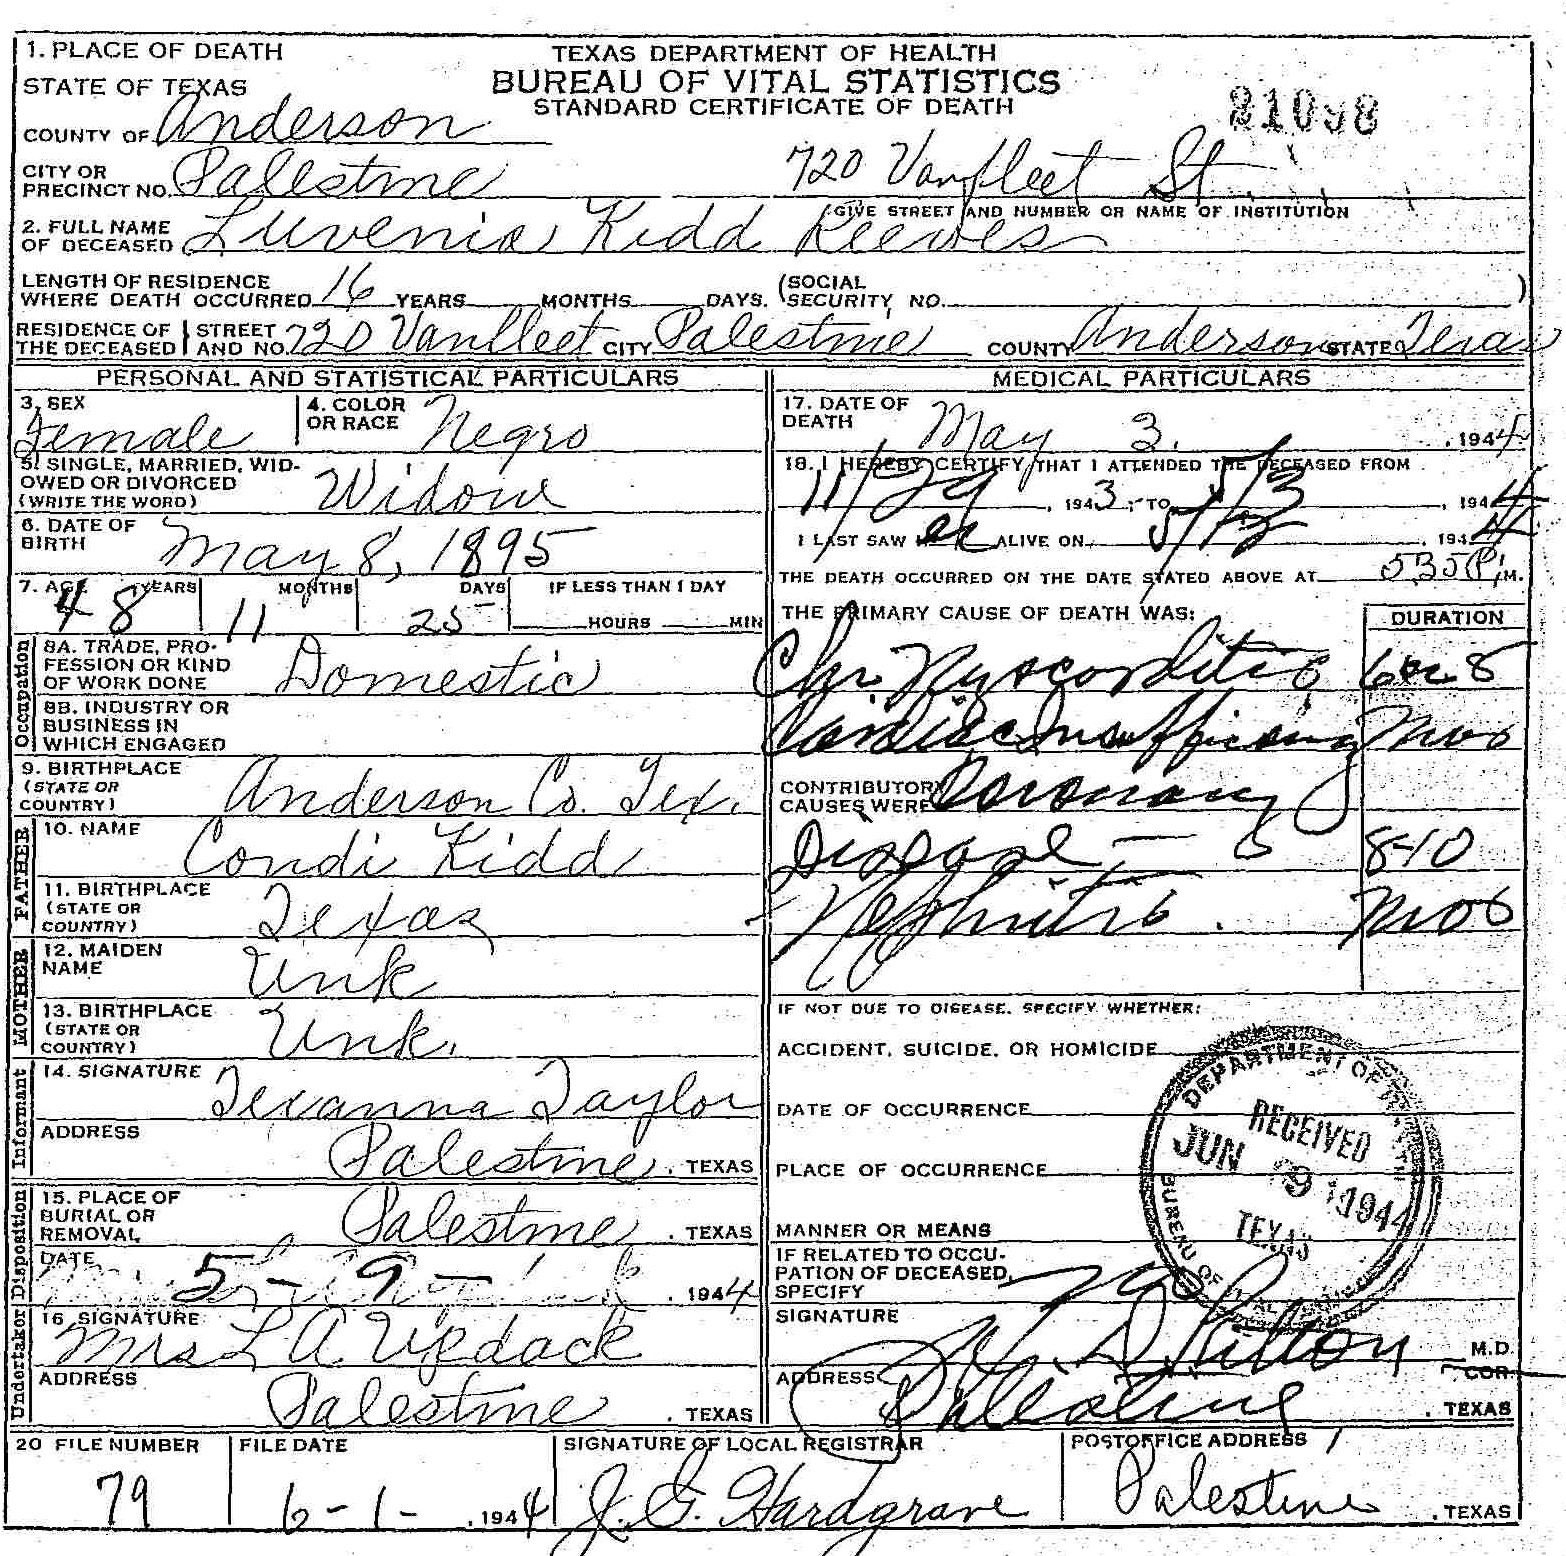 1. PLACE OF DEATH
TEXAS DEPARTMENT OF HEALTH
STATE OF TEXAS
BUREAU OF VITAL STATISTICS
STANDARD CERTIFICATE OF DEATH
21098
COUNTY OF Anderson
CITY OR PRECINCT NO. Palestine 720 Vanfleet St.
GIVE STREET AND NUMBER OR NAME OF INSTITUTION
2. FULL NAME OF DECEASED Luvenia Kidd Reeves
LENGTH OF RESIDENCE WHERE DEATH OCCURRED 16 YEARS MONTHS DAYS. (SOCIAL SECURITY NO. )
RESIDENCE OF THE DECEASED STREET AND NO. 720 Vanfleet CITY Palestine COUNTY Anderson STATE Texas
PERSONAL AND STATISTICAL PARTICULARS
3. SEX Female
4. COLOR OR RACE Negro
5. SINGLE, MARRIED, WIDOWED OR DIVORCED (WRITE THE WORD) Widow
6. DATE OF BIRTH May 8, 1895
7. AGE 48 YEARS 11 MONTHS 25 DAYS IF LESS THAN 1 DAY HOURS MIN
Occupation
8A. TRADE, PROFESSION OR KIND OF WORK DONE Domestic
8B. INDUSTRY OR BUSINESS IN WHICH ENGAGED
9. BIRTHPLACE (STATE OR COUNTRY) Anderson Co. Tex.
FATHER
10. NAME Condi Kidd
11. BIRTHPLACE (STATE OR COUNTRY) Texas
MOTHER
12. MAIDEN NAME Unk
13. BIRTHPLACE (STATE OR COUNTRY) Unk.
Informant
14. SIGNATURE Texanna Taylor
ADDRESS Palestine. TEXAS
Disposition
15. PLACE OF BURIAL OR REMOVAL Palestine . TEXAS
DATE 5-9- . 1944
Undertaker
16 SIGNATURE Mrs L A Updack
ADDRESS Palestine . TEXAS
MEDICAL PARTICULARS
17. DATE OF DEATH May 3. , 1944
18. I HEREBY CERTIFY THAT I ATTENDED THE DECEASED FROM
11/29 , 1943, TO 5/3 , 1944
I LAST SAW her ALIVE ON 5/3 , 1944
THE DEATH OCCURRED ON THE DATE STATED ABOVE AT 535 P. M.
THE PRIMARY CAUSE OF DEATH WAS: DURATION
Chr. Myocarditis 8
Cardiac Insufficiency Mos
CONTRIBUTORY CAUSES WERE Coronary
Disease - 8-10
Nephritis. Mos
IF NOT DUE TO DISEASE, SPECIFY WHETHER:
ACCIDENT, SUICIDE, OR HOMICIDE
DATE OF OCCURRENCE
PLACE OF OCCURRENCE
MANNER OR MEANS
IF RELATED TO OCCUPATION OF DECEASED, SPECIFY no
DEPARTMENT OF HEALTH
RECEIVED
JUN 9 1944
TEXAS
BUREAU OF VITAL STATISTICS
SIGNATURE M.D.
COR.
ADDRESS Palestine . TEXAS
20 FILE NUMBER 79
FILE DATE 6-1- , 1944
SIGNATURE OF LOCAL REGISTRAR J. G. Hardgrave
POSTOFFICE ADDRESS Palestine . TEXAS